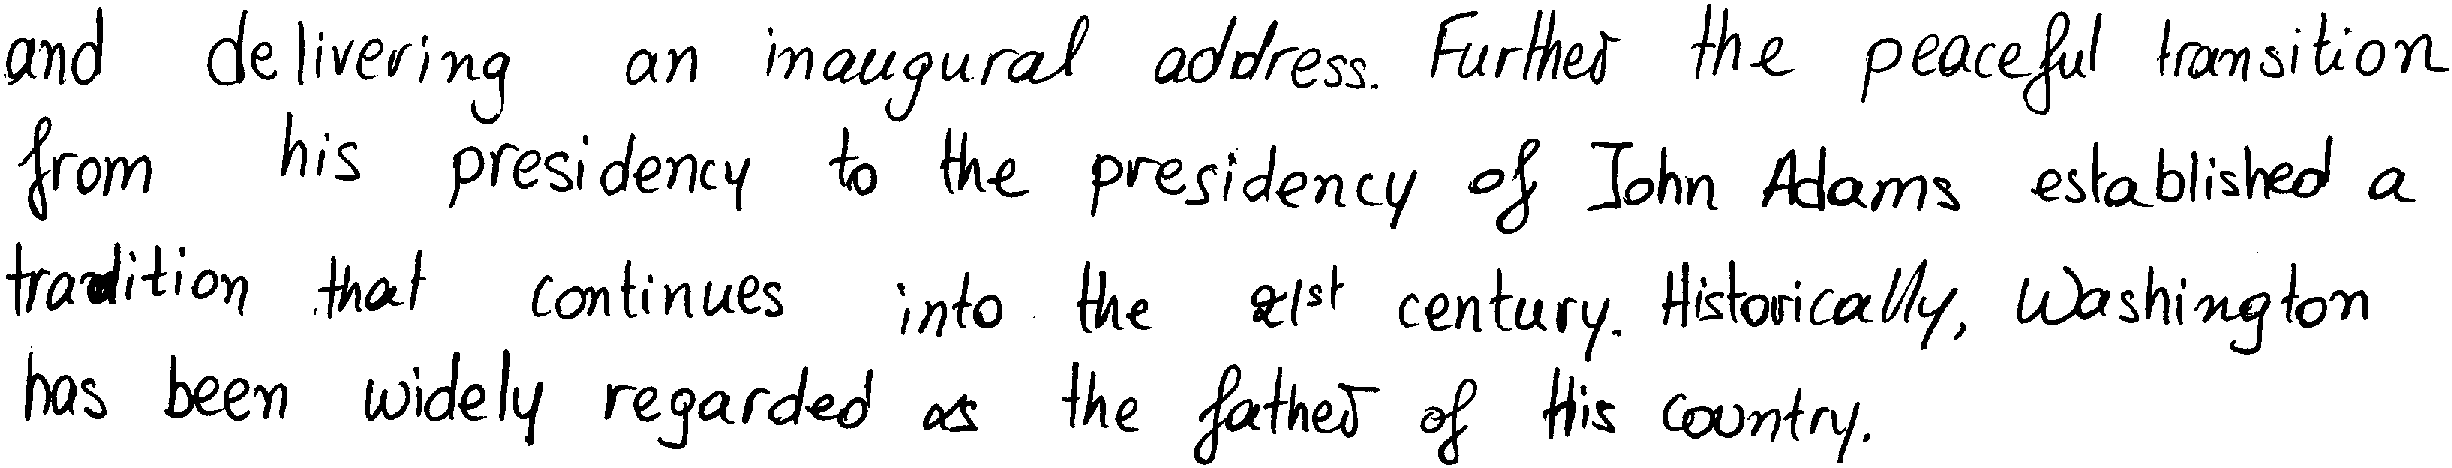 and delivering an inaugural address. Further the peaceful transition
from his presidency to the presidency of John Adams established a
tradition that continues into the 21st century. Historically, Washington
has been widely regarded as the father of His country.